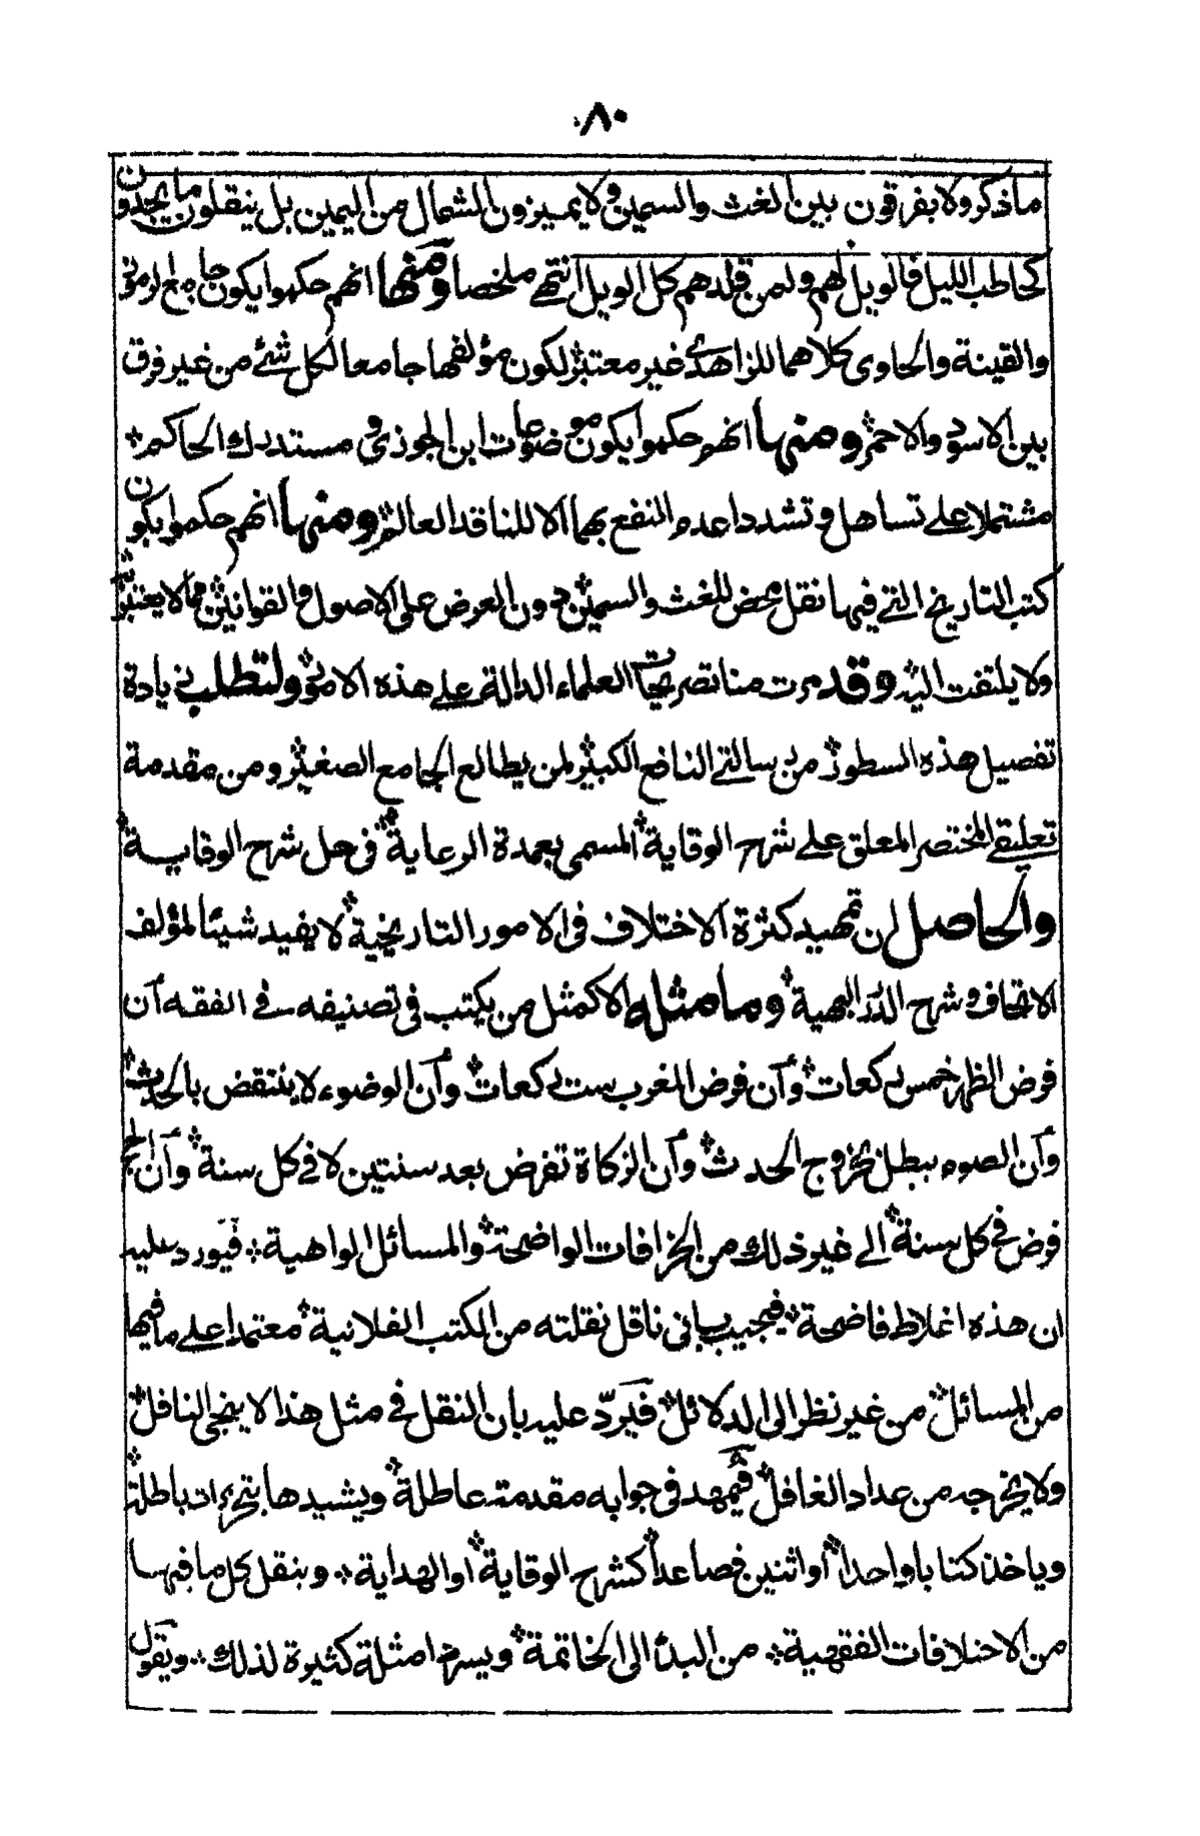 ٨٠
ما ذكر ولا يفرقون بين الغث والسمين ولا يميزون الشمال من اليمين بل ينقلون ما يجدون
كحاطب الليل فالويل لهم ولمن قلدهم كل الويل انتهى ملخصا ومنها انهم حكموا بكون جامع الرموز
والقينة والحاوى كلاهما للزاهدى غير معتبر لكون مؤلفها جامعا لكل شئ من غير فرق
بين الاسود والاحمر ومنها انهم حكموا بكون موضوعات ابن الجوزى و مستدرك الحاكم
مشتملا على تساهل وتشدد اعدم المنفع بهما الا للناقد العالم ومنها انهم حكموا بكون
كتب التاريخ التى فيها نقل محض للغث والسمين دون العرض على الاصول والقوانين مما لا يعتبر
ولا يلتفت اليه وقد مرت منا تصريحات العلماء الدالة على هذه الامور ولتطلب زيادة
تفصيل هذه السطور من رسالتى النافع الكبير لمن يطالع الجامع الصغير ومن مقدمة
تعليقى المختصر المعلق على شرح الوقاية المسمى بعمدة الرعاية فى حل شرح الوقاية
والحاصل ان تمهيد كثرة الاختلاف فى الامور التاريخية لا يفيد شيئا لمؤلف
الاتحاف و شرح الدرر البهية وما مثله الا كمثل من يكتب فى تصنيفه فى الفقه أن
فرض الظهر خمس ركعات وأن فرض المغرب ست ركعات وأن الوضوء لا ينتقض بالحدث
وأن الصوم يبطل بخروج الحدث وأن الزكاة تفرض بعد سنتين لا فى كل سنة وأن الحج
فرض فى كل سنة الى غير ذلك من الخرافات الواضحة والمسائل الواهية فيورد عليه
ان هذه اغلاط فاضحة فيجيب بانى ناقل نقلته من الكتب الفلانية معتمدا على ما فيها
من المسائل من غير نظر الى الدلائل فيردّ عليه بان النقل فى مثل هذا لا ينجى الناقل
ولا يخرجه من عداد الغافل فيمهد فى جوابه مقدمة عاطلة ويشيدها بتحريرات باطلة
وياخذ كتابا واحدا أو اثنين فصاعدا كشرح الوقاية او الهداية وينقل كل ما فيها
من الاختلافات الفقهية من البدأ الى الخاتمة ويسرد امثلة كثيرة لذلك ويقول